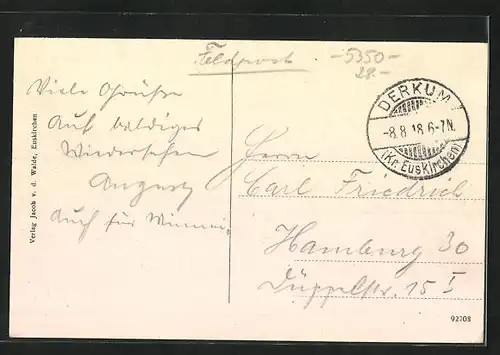 Feldpost
-5350-
28.-
DERKUM
-8.8.18.6-7N.
(Kr. Euskirchen)
Viele Grüße
Auf baldiges
Wiedersehen
August
Auch für
Herrn
Carl Friedrich
Hamburg 30
Düppelstr. 15 I
Verlag Jacob v. d. Walde, Euskirchen
92708